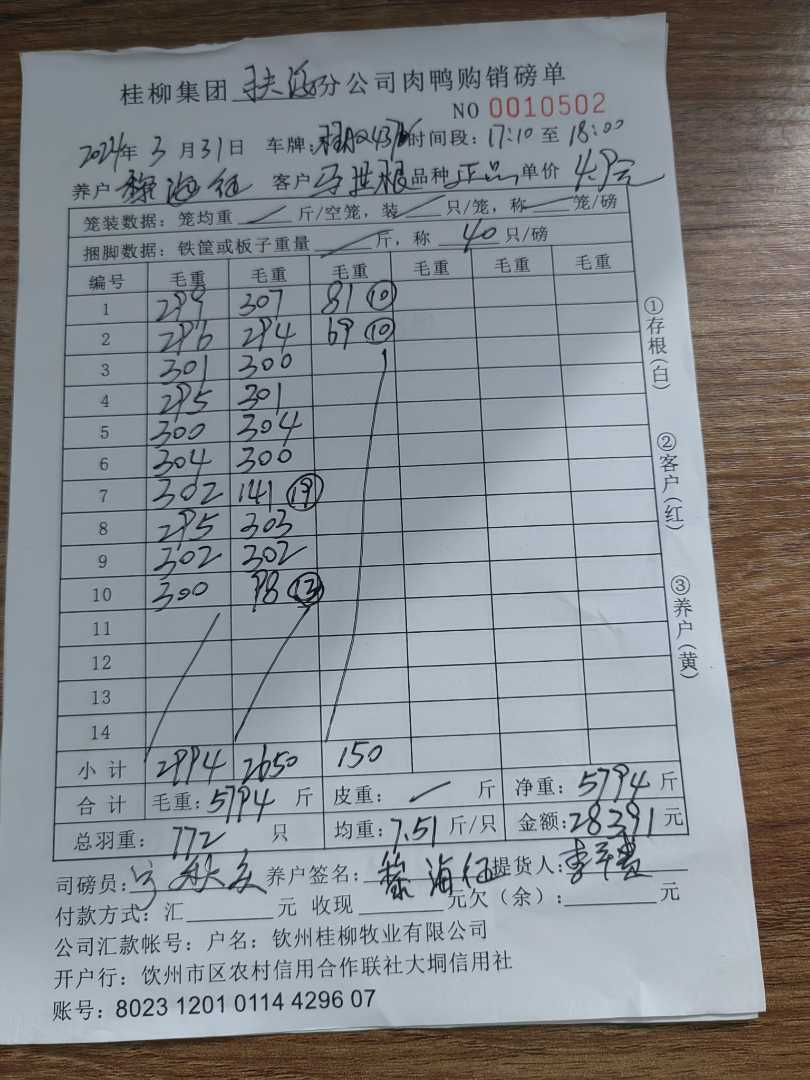 桂柳集团 扶海 分公司肉鸭购销磅单
NO 0010502
2024年 3月31日 车牌: 时间段: 17:10 至 18:00
养户 黎海 客户 马世根 品种 正品 单价 4.9元
笼装数据: 笼均重 / 斤/空笼, 装 / 只/笼, 称 / 笼/磅
捆脚数据: 铁筐或板子重量 / 斤, 称 40 只/磅
编号 毛重 毛重 毛重 毛重 毛重 毛重
1 299 307 81 ⑩
2 296 294 69 ⑩
3 301 300
4 295 301
5 300 304
6 304 300
7 302 141 ⑲
8 295 303
9 302 302
10 300 98 ⑬
11
12
13
14
小计 2994 2650 150
合计 毛重: 5794 斤 皮重: / 斤 净重: 5794 斤
总羽重: 772 只 均重: 7.51 斤/只 金额: 28391 元
司磅员: 养户签名: 黎海 提货人: 李
付款方式: 汇 元 收现 元 欠(余): 元
公司汇款帐号: 户名: 钦州桂柳牧业有限公司
开户行: 饮州市区农村信用合作联社大垌信用社
账号: 8023 1201 0114 4296 07
①存根(白)
②客户(红)
③养户(黄)